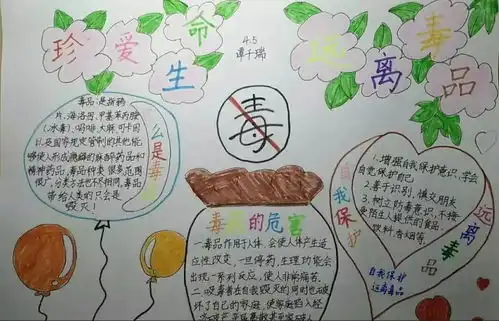 珍爱生命
远离毒品
4.5
谭千瑞
什么是毒品
毒品:是指鸦
片、海洛因、甲基苯丙胺
(冰毒)、吗啡、大麻、可卡因
以及国家规定管制的其他能
够使人形成瘾癖的麻醉药品和
精神药品,毒品种类很多,范围
很广,分类方法也不尽相同,毒品
带给人类的只会是
毁灭!
毒
毒品的危害
一毒品作用于人体,会使人体产生适
应性改变,一旦停药,生理功能会
出现一系列反应,使人非常痛苦。
二吸毒者在自我毁灭的同时也破
坏了自己的家庭,使家庭陷入经
自我保护
远离毒品
1.增强自我保护意识,学会
自觉保护自己
2.善于识别,慎交朋友
3.树立防毒意识,不接
受陌生人提供的食品、
饮料、香烟等。
自我保护
远离毒品